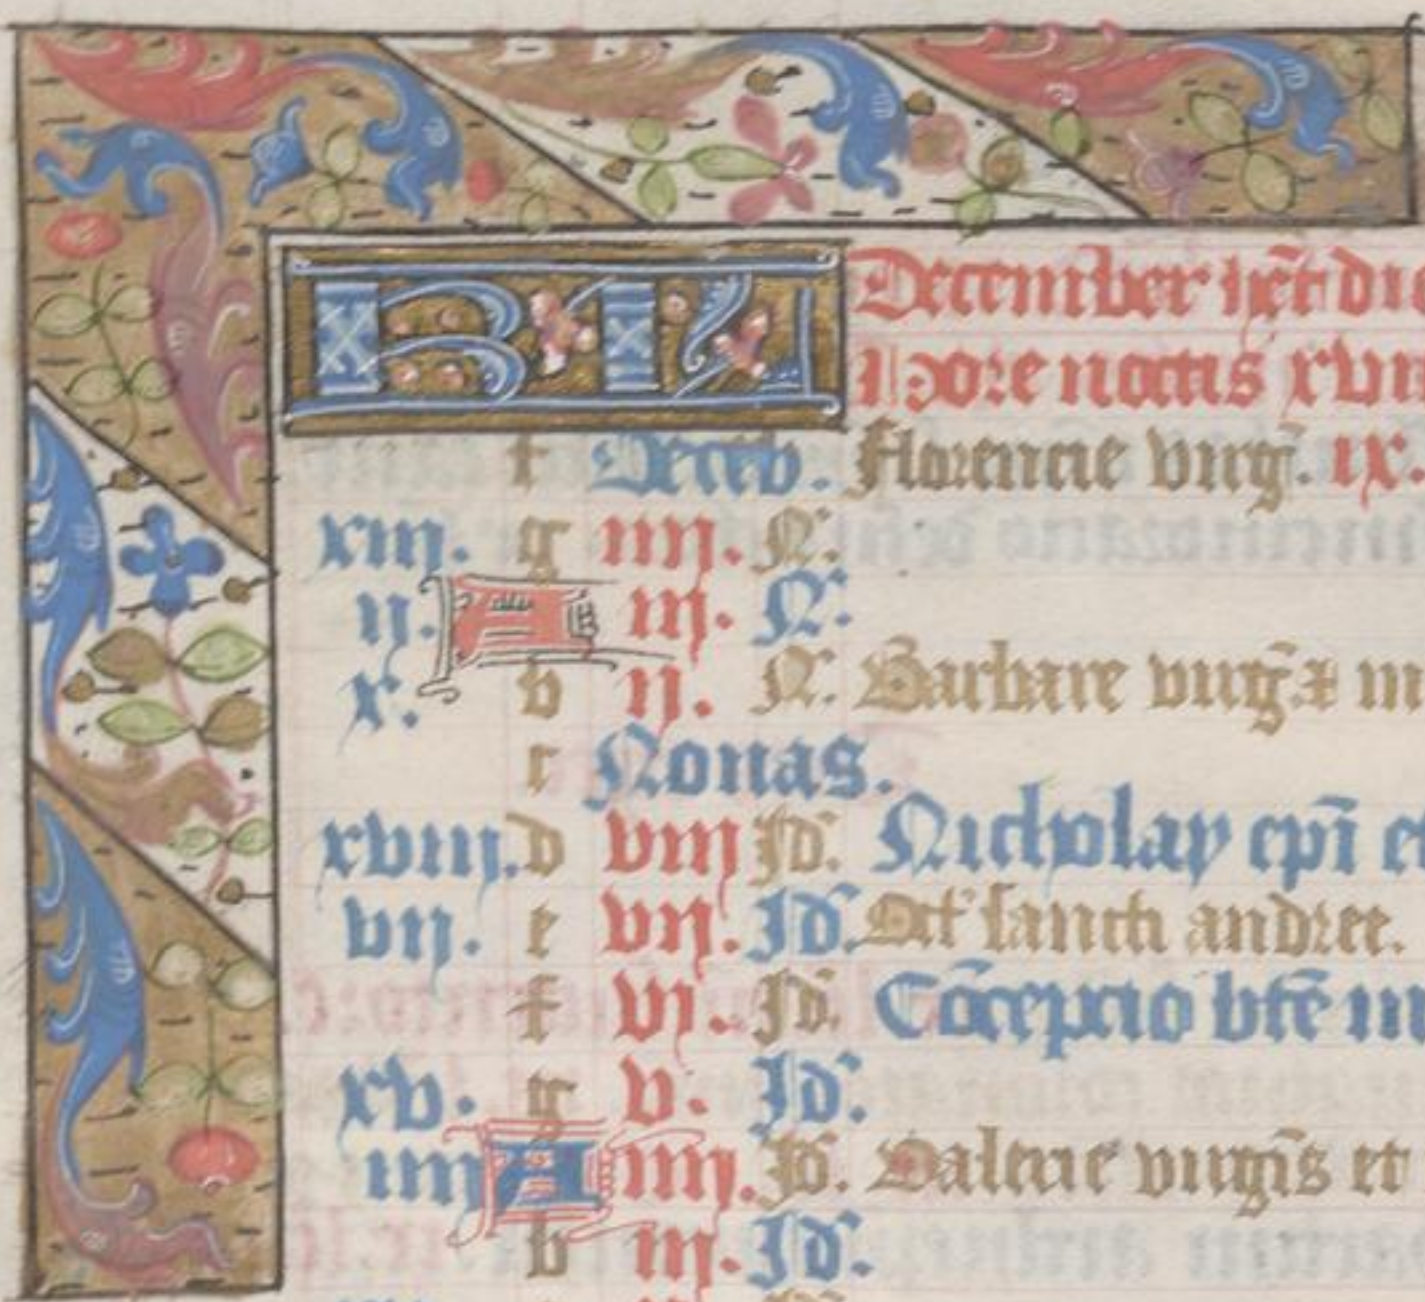 KL December hēt di
Hore noctis xviii
f Decēb. Florencie virḡ. ix.
xiii. g iiii. N.
ii. A iii. N.
x. b ii. N. Barbare virḡ. ⁊ m
c Nonas.
xviii. d viii Id. Nicholay ep̄i e
vii. e vii. Id. Oct' sancti andree.
f vi. Id. Cōcepcio btē m
xv. g v. Id.
iiii A iiii. Id. Valerie virgīs et
b iii. Id.